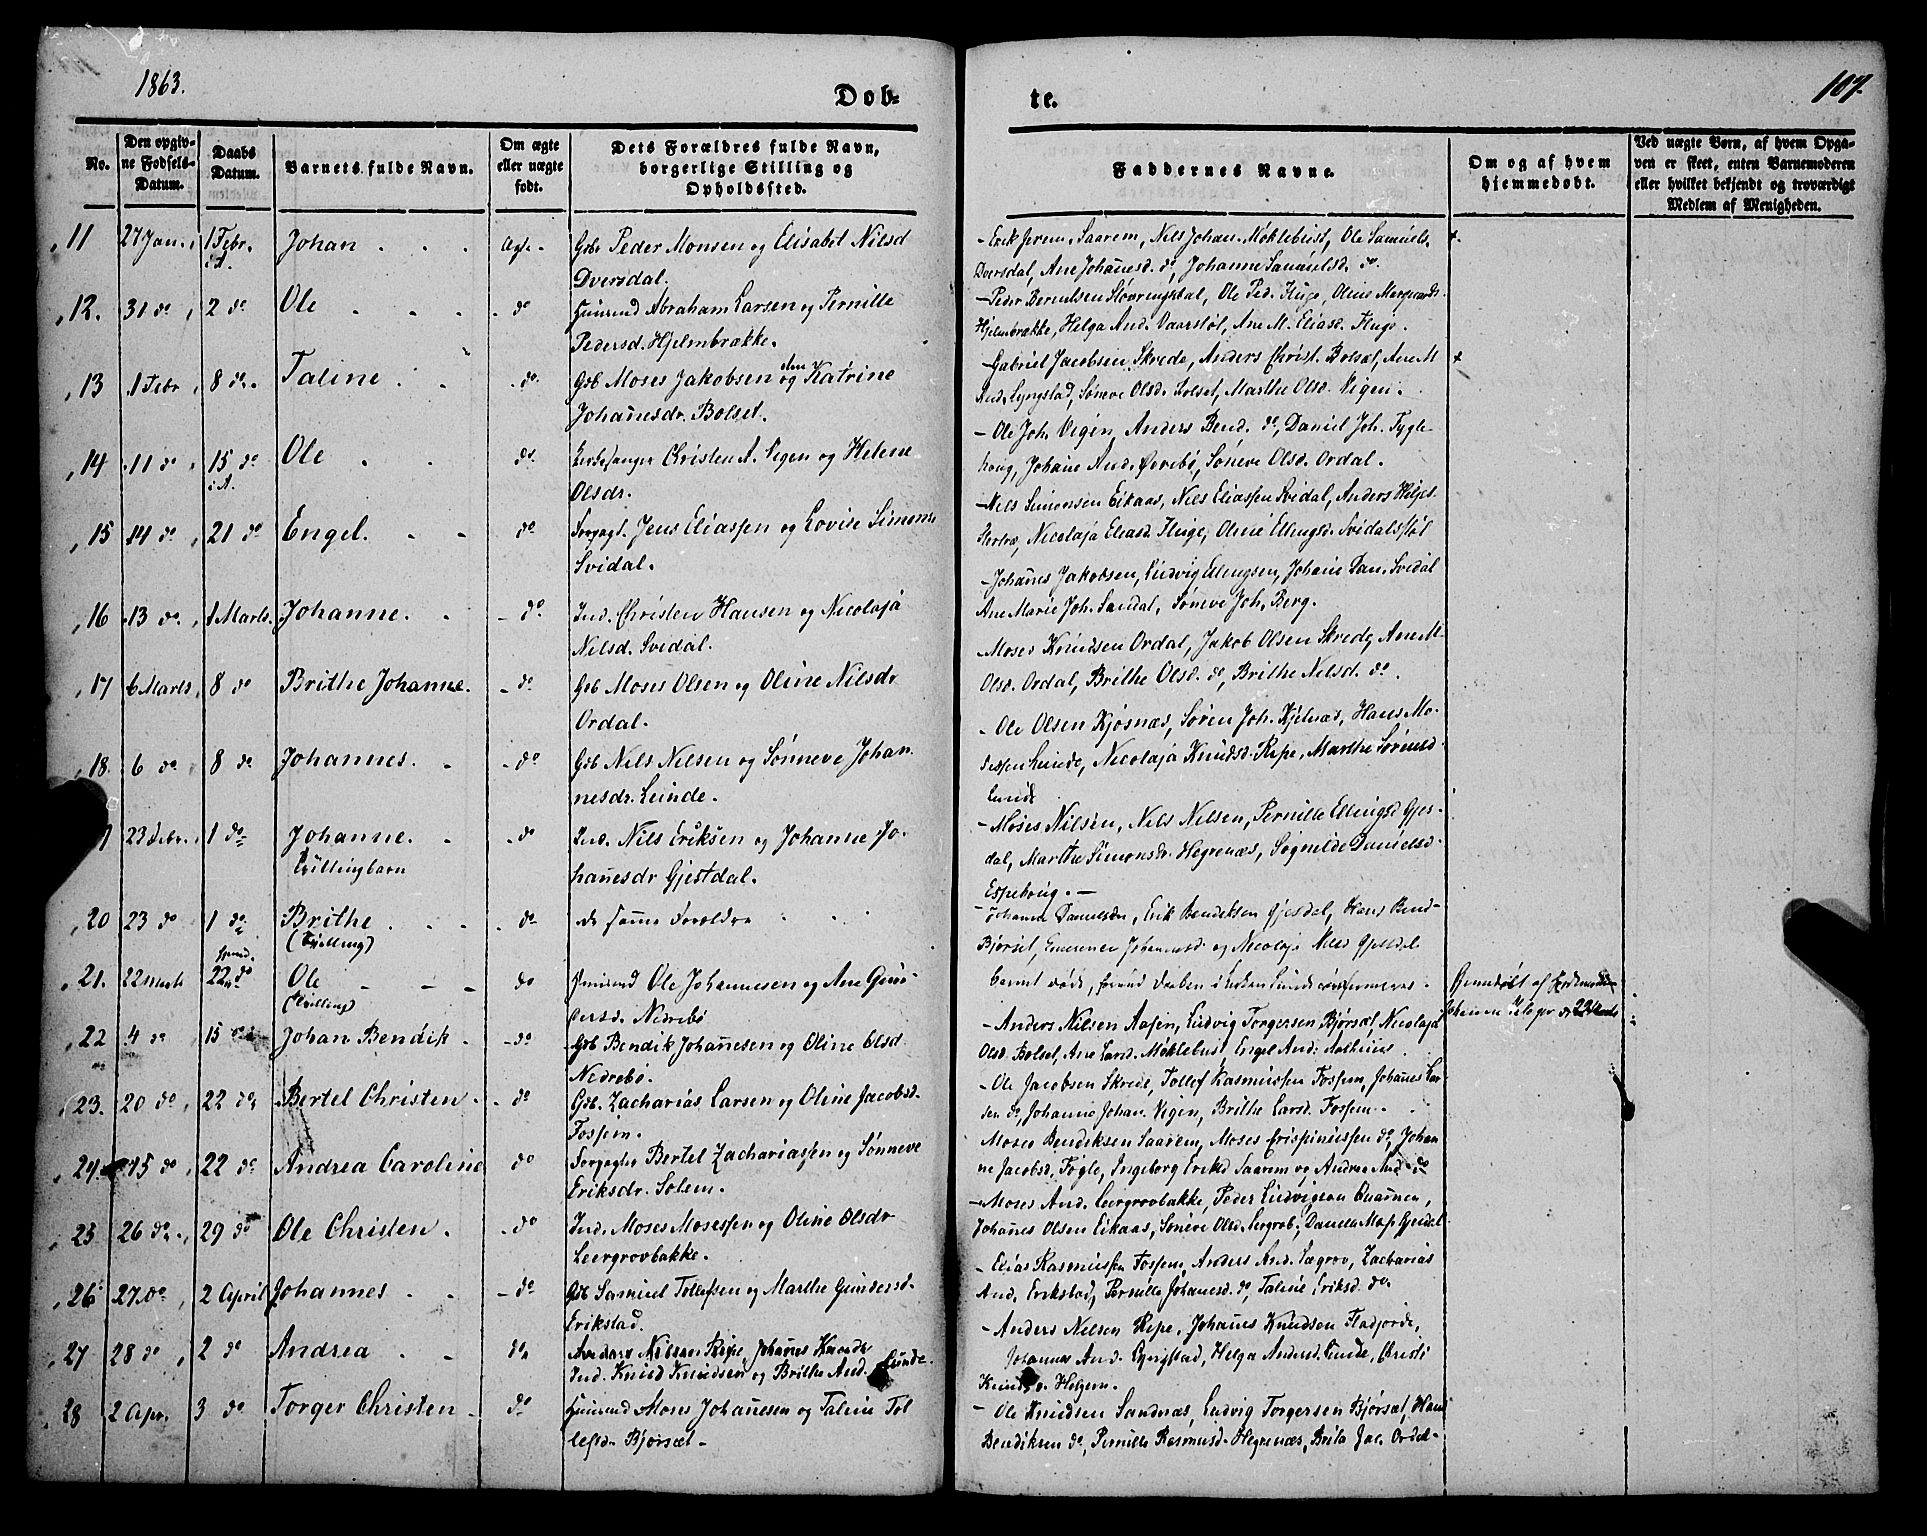 1863.
Döb-
te.
107.
No.
Den opgiv-
ne Fødsels-
Datum.
Daabs
Datum.
Barnets fulde Navn.
Om ægte
eller uægte
født.
Dets Forældres fulde Navn,
borgerlige Stilling og
Opholdssted.
Faddernes Navne.
Om og af hvem
hjemmedøbt.
Ved uægte Børn, af hvem Opga-
ven er skeet, enten Barnemoderen
eller hvilket bekjendt og troværdigt
Medlem af Menigheden.
11 27 Jan. 1 Febr. Johan Ægte Gbr Peder Monsen og Elisabet Nilsd
i A. Dversdal.
Erik Jerem. Saarem, Nils Johan. Møklebust, Ole Samuels.
Dversdal, Ane Johanesd. do, Johanne Samuelsd. do.
12. 31 do 2 do Ole do Huusmd Abraham Larsen og Pernille
Pedersd. Hjelmbrække.
Peder Berentsen Støvringsdal, Ole Ped. Fluge, Oline Margvards.
Hjelmbrække, Helga And. Vaarstøl, Ane M. Eliasd. Fluge.
13 1 Febr 8 do Taline do Gbr Moses Jakobsen og Katrine
Johanesdr. Bolset.
Gabriel Jacobsen Skrede, Anders Christ. Bolsæt, Ane M
And. Lyngstad, Søneve Olsd. Solset, Marthe Olsd. Vigen.
14 11 do 15 do Ole do Kirkesanger Christen A. Vigen og Helene
i A. Olsdr.
Ole Joh. Vigen, Anders Bend. do, Daniel Joh. Fygle-
houg, Johane And. Øvrebø, Søneve Olsd. Ordal.
15 14 do 21 do Engel. do Forpagt. Jens Eliassen og Lovise Simons
Svidal.
Nils Simonsen Eikaas, Nils Eliassen Svidal, Anders Helges.
Nicolaja Eliasd. Fluge, Oline Ellingsd. Svidalsstøl
16 13 do 1 Marts. Johanne. do Ind. Christen Hansen og Nicolaja
Nilsd. Svidal.
Johanes Jakobsen, Ludvig Ellingsen, Johane Dan. Svidal
Ane Marie Joh. Sandal, Søneve Joh. Berg.
17 6 Marts 8 do Brithe Johanne. do Gbr Moses Olsen og Oline Nilsdr
Ordal.
Moses Knudsen Ordal, Jakob Olsen Skrede, Ane M.
Olsd. Ordal, Brithe Olsd. do, Brithe Nilsd. do.
18. 6 do 8 do Johannes. do Gbr Nils Nilsen og Sønneve Johan
nesdr. Lunde.
Ole Olsen Kjøsnæs, Søren Joh. Kjelnæs, Hans Mo-
sessen Lunde, Nicolaja Knudsd. Repe, Marthe Sørensd
Lunde
23 Febr. 1 do Johanne. do Ind. Nils Eriksen og Johanne Jo-
Tvillingbarn hanesdr Gjesdal.
Moses Nilsen, Nils Nilsen, Pernille Ellingsd Gjes-
dal, Marthe Simonsdr. Hegrenæs, Sognilde Danielsd.
Espehoug.
20 23 do 1 do Brithe do de samme Forældre
(Tvilling)
Johanne Danielsdr, Erik Bendiksen Gjesdal, Hans Bend
Bjørset, Johannesd og Nicolaja Nilsd Gjesdal
21. 22 Marts 22 do Ole do Huusmd Ole Johannesen og Ane Gun-
(Tvilling) dersd. Nedrebø
Barnet døde, førend Daaben i Kirken kunde confirmeres.
Hjemdøbt af Jordemoder
Johanne d 22 Marts
22 4 do 15 do Johan Bendik do Gbr Bendik Johanesen og Oline Olsd
Nedrebø.
Anders Nilsen Aasen, Ludvig Torgersen Bjørsæt, Nicolaja
Olsd. Bolset, Ane Larsd. Møklebust, Engel And.
23. 20 do 22 do Bertel Christen do Gbr. Zacharias Larsen og Oline Jacobsd.
Fossem.
Ole Jacobsen Skrede, Tollef Rasmussen Fossem, Johanes Lar-
sen do, Johanne Johan. Vigen, Brithe Larsd. Fossem.
24. 15 do 22 do Andrea Caroline do Forpagter Bertel Zachariassen og Sønneve
Eriksdr. Solem.
Moses Bendiksen Saarem, Moses Crispinussen do, Johan
ne Jacobsd. Fogle, Ingeborg Eriksd Saarem og Andrea And. do
25 26 do. 29 do Ole Christen. do Ind. Moses Mosessen og Oline Olsdr
Leergrovbakke.
Moses And. Leergrovbakke, Peder Ludvigsen Quamen,
Johanes Olsen Eikaas, Søneve Olsd. Lergrob, Daniela Mos. Gjesdal
26 27 do 2 April Johannes do Gbr Samuel Tollefsen og Marthe Gundersd.
Erikstad.
Elias Rasmussen Fossem, Anders And. Lægrov, Zacharias
And. Erikstad, Pernille Johanesd. do, Taline Eriksd. do.
27 28 do 2 do Andrea do Anders Nilsen Repe, Johanes Knuds
Ind. Knud Knudsen og Brithe And. Lunde.
Anders Nilsen Repe, Johanes Knudsen Fladjorde,
Johannes And. Lyngstad, Helga Andersd. Lunde, Christi
Knudsd. Helgern.
28 2 Apr. 3 do Torger Christen do Huusmd Moses Johanesen og Taline Tol
lefsd. Bjørsæt
Ole Knudsen Sandnæs, Ludvig Torgersen Bjørsæt, Hans
Bendiksen do, Pernille Rasmusd. Hegrenæs, Brita Jac. Ordal